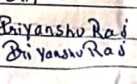 Priyanshu Raj
Priyanshu Raj